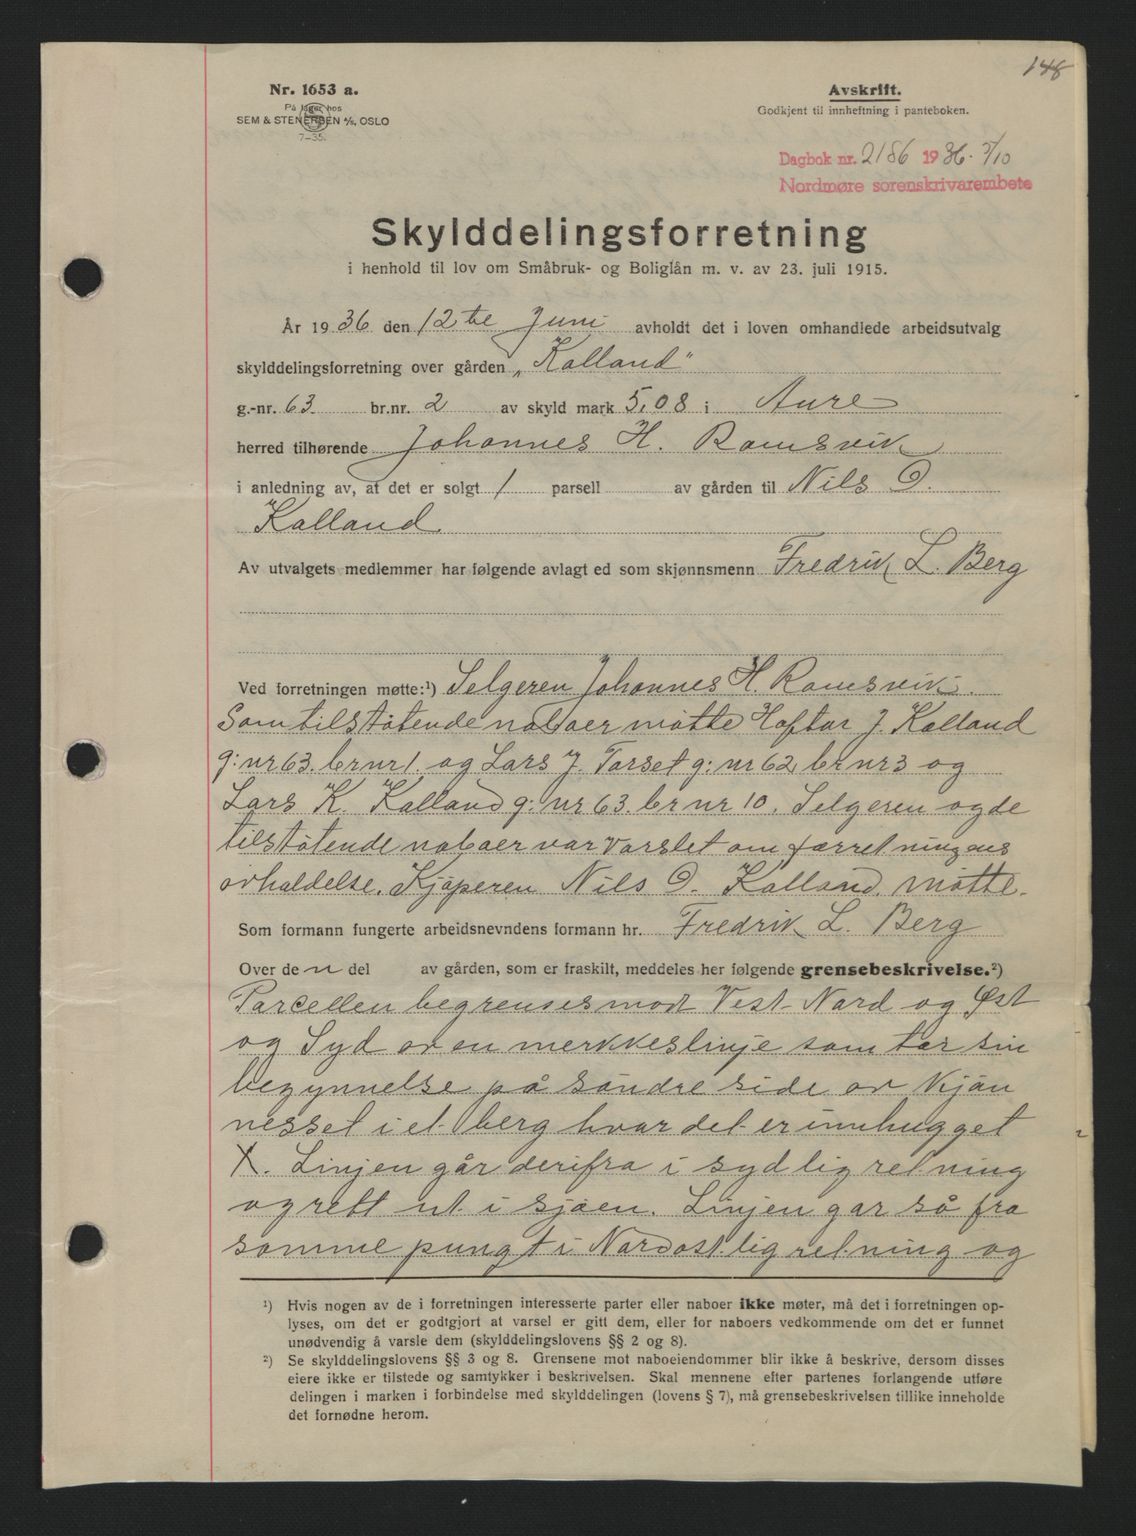 148
Nr. 1653 a.
På lager hos
SEM & STENERSEN A/S, OSLO
7—35.
Avskrift.
Godkjent til innheftning i panteboken.
Dagbok nr. 2186 1936. 3/10
Nordmøre sorenskrivarembete
Skylddelingsforretning
i henhold til lov om Småbruk- og Boliglån m. v. av 23. juli 1915.
År 1936 den 12te Juni avholdt det i loven omhandlede arbeidsutvalg
skylddelingsforretning over gården „Kalland"
g.-nr. 63 br.nr. 2 av skyld mark 5,08 i Aure
herred tilhørende Johannes H. Ramsvik
i anledning av, at det er solgt 1 parsell av gården til Nils O.
Kalland
Av utvalgets medlemmer har følgende avlagt ed som skjønnsmenn Fredrik L. Berg
Ved forretningen møtte:¹) Selgeren Johannes H. Ramsvik.
Som tilstøtende naboer møtte Haftor J. Kalland
g: nr 63. br nr 1. og Lars J. Torset g: nr 62 br nr 3 og
Lars K. Kalland g: nr 63. br nr 10. Selgeren og de
tilstøtende naboer var varslet om forretningens
avholdelse. Kjøperen Nils O. Kalland møtte.
Som formann fungerte arbeidsnevndens formann hr. Fredrik L. Berg
Over den del av gården, som er fraskilt, meddeles her følgende grensebeskrivelse.²)
Parcellen begrenses mot Vest Nord og Øst
og Syd av en merkkeslinje som tar sin
begynnelse på søndre side av
nesset i et berg hvor det er innhugget
X. Linjen går derifra i sydlig retning
og rett ut i sjøen. Linjen gar så fra
somme pungt i Nordøstlig retning og
¹) Hvis nogen av de i forretningen interesserte parter eller naboer ikke møter, må det i forretningen op-
lyses, om det er godtgjort at varsel er gitt dem, eller for naboers vedkommende om det er funnet
unødvendig å varsle dem (skylddelingslovens §§ 2 og 8).
²) Se skylddelingslovens §§ 3 og 8. Grensene mot naboeiendommer blir ikke å beskrive, dersom disses
eiere ikke er tilstede og samtykker i beskrivelsen. Skal mennene efter partenes forlangende utføre
delingen i marken i forbindelse med skylddelingen (lovens § 7), må grensebeskrivelsen tillike inneholde
det fornødne herom.